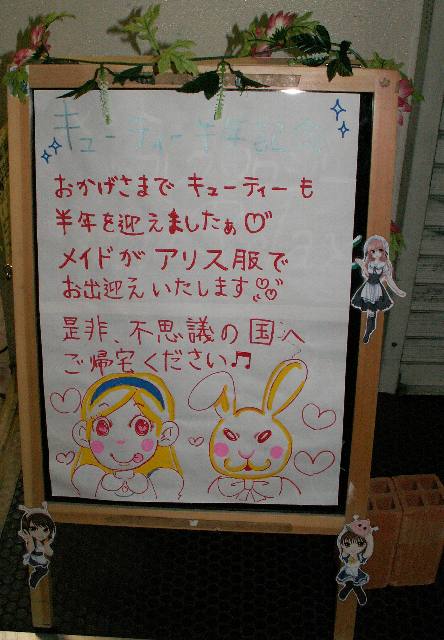 キューティー半年記念
おかげさまで キューティーも
半年を迎えましたぁ♡
メイドが アリス服で
お出迎えいたします♡♡
是非、不思議の国へ
ご帰宅ください♫